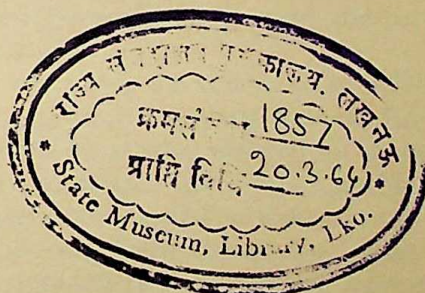 राज्य संग्रहालय पुस्तकालय, लखनऊ
क्रमसंख्या 1857
प्राप्ति तिथि 20.3.64
* State Museum, Library, Lko. *